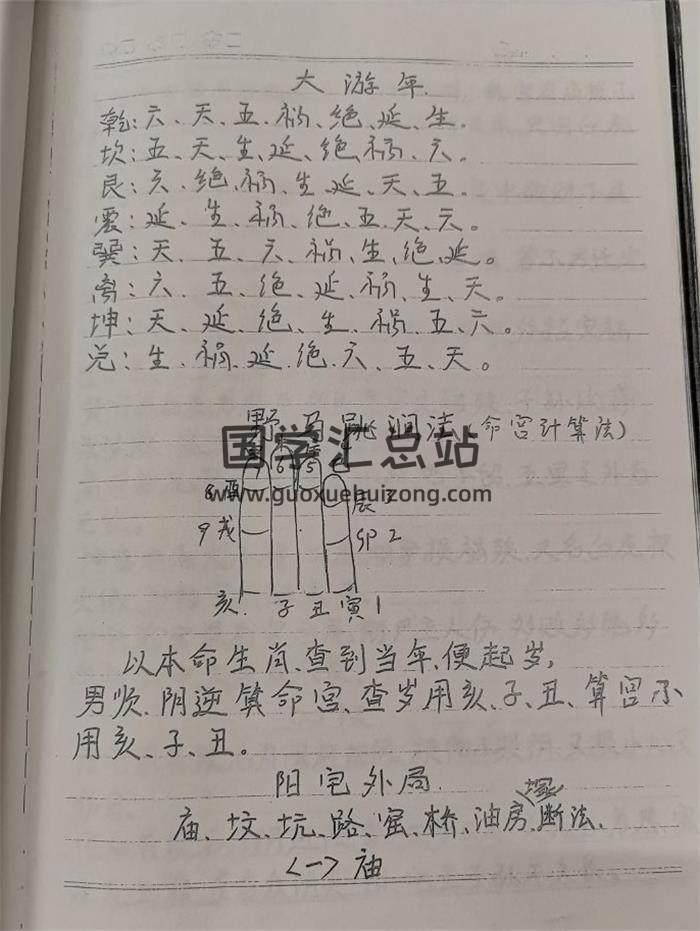 大游年
乾:六、天、五、祸、绝、延、生.
坎:五、天、生、延、绝、祸、六.
艮:六、绝、祸、生、延、天、五.
震:延、生、祸、绝、五、天、六。
巽:天、五、六、祸、生、绝、延。
离:六、五、绝、延、祸、生、天。
坤:天、延、绝、生、祸、五、六。
兑:生、祸、延、绝、六、五、天。
野马跳涧法(命宫计算法)
国学汇总站
www.guoxuehuizong.com
7 6 5
8 酉 辰
9 戌 卯 2
亥 子 丑 寅 1
以本命生肖、查到当年、便起岁,
男顺、阴逆算命宫、查岁用亥、子、丑、算宫不
用亥、子、丑。
阳宅外局
庙、坟、坑、路、窑、桥、油房、断法、
<一> 庙